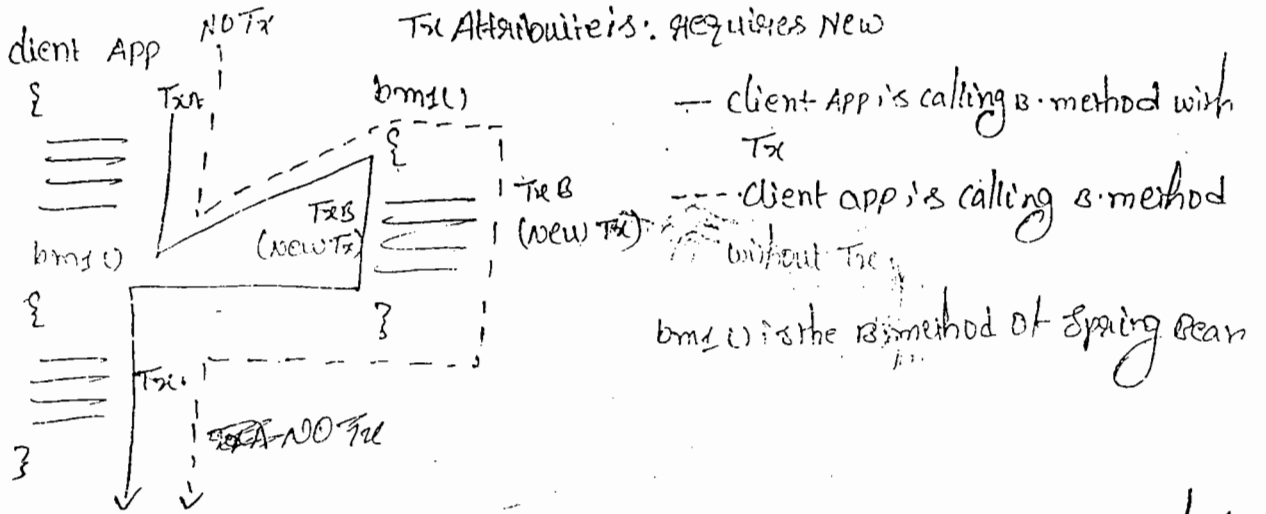 NO Tx
Tx Attribuite is: Requires New
client App
{
TxA
bm1()
{
— client App is calling B.method with
Tx
TxB
(New Tx)
TxB
(New Tx)
---- client app is calling B.method
without Tx
bm1()
{
}
bm1() is the B.method of Spring Bean
Tx
NO Tx
}